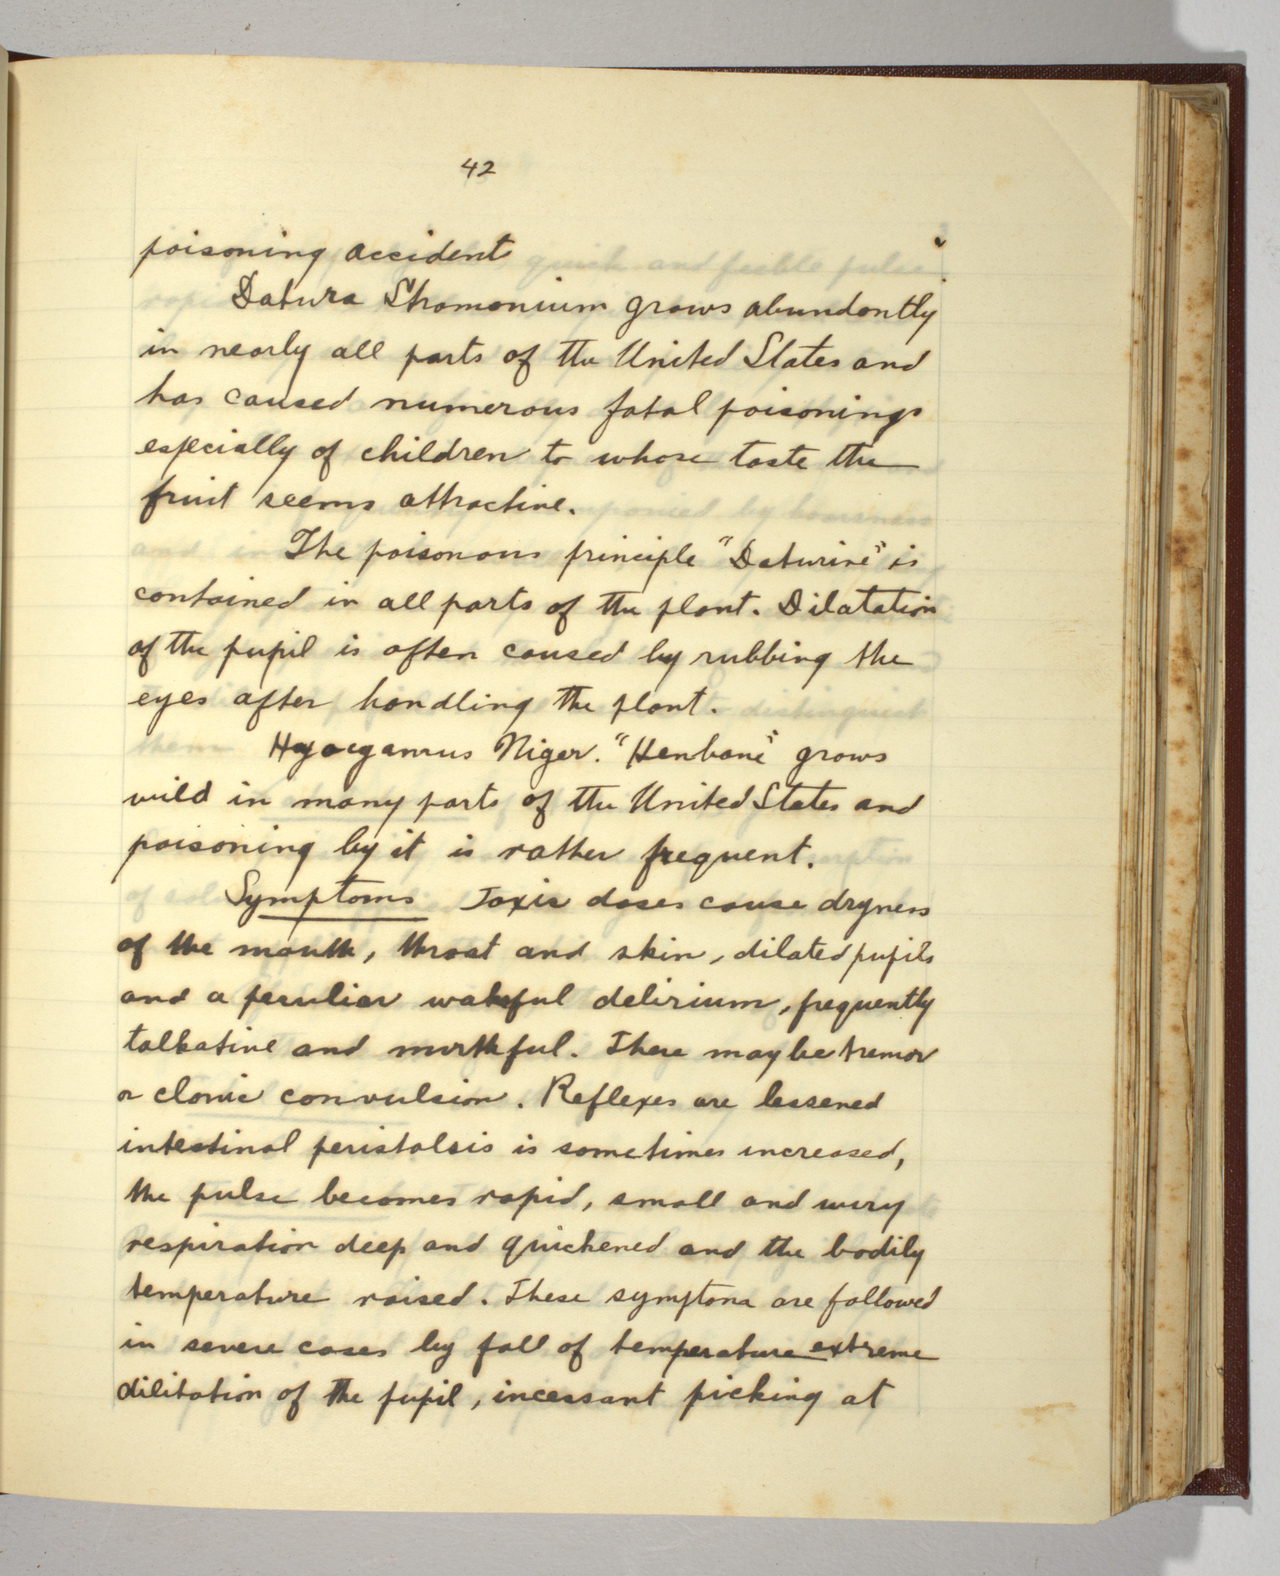 42
poisoning accident
Datura Stramonium grows abundantly
in nearly all parts of the United States and
has caused numerous fatal poisonings
especially of children to whose taste the
fruit seems attractive.
The poisonous principle "Daturine" is
contained in all parts of the plant. Dilatation
of the pupil is often caused by rubbing the
eyes after handling the plant.
Hyocyamus Niger. "Henbane" grows
wild in many parts of the United States and
poisoning by it is rather frequent.
Symptoms Toxic doses cause dryness
of the mouth, throat and skin, dilated pupils
and a peculiar wakeful delirium, frequently
talkative and mirthful. There may be tremor
or clonic convulsion. Reflexes are lessened
intestinal peristalsis is sometimes increased,
the pulse becomes rapid, small and wiry
respiration deep and quickened and the bodily
temperature raised. These symptoms are followed
in severe cases by fall of temperature extreme
dilitation of the pupil, incessant picking at